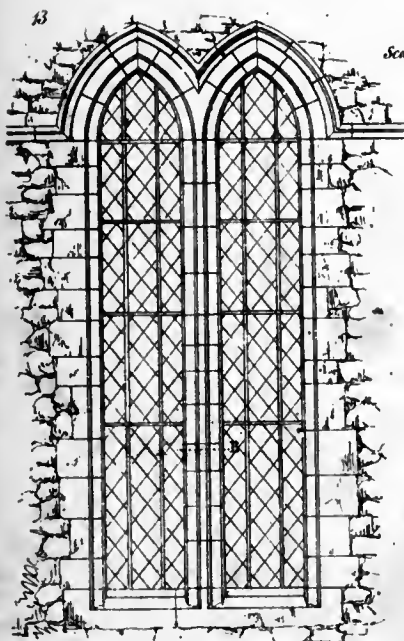 13
Sca
B